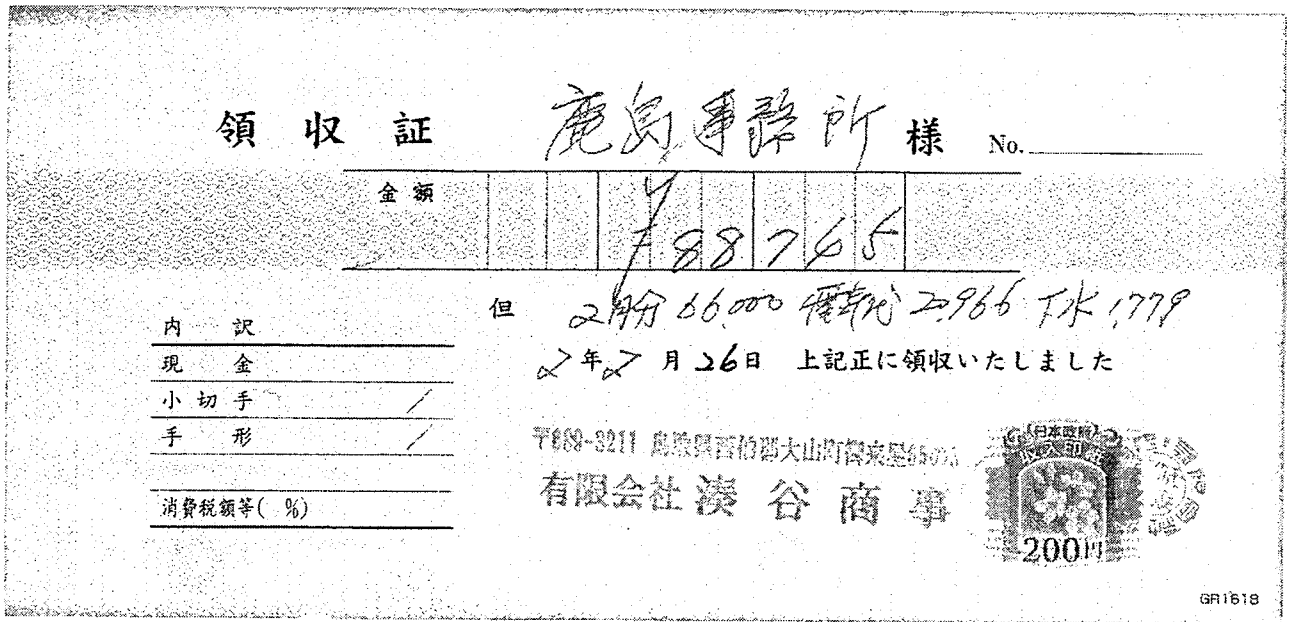 領収証 鹿島事務所 様 No.
金額 ¥88745
但 2月分 66,000 電気代 20,966 下水 1,779
2年2月26日 上記正に領収いたしました
内訳
現金
小切手 /
手形 /
消費税額等( %)
〒689-3211 鳥取県西伯郡大山町御来屋
有限会社 湊谷商事
日本政府
収入印紙
200円
GR1618